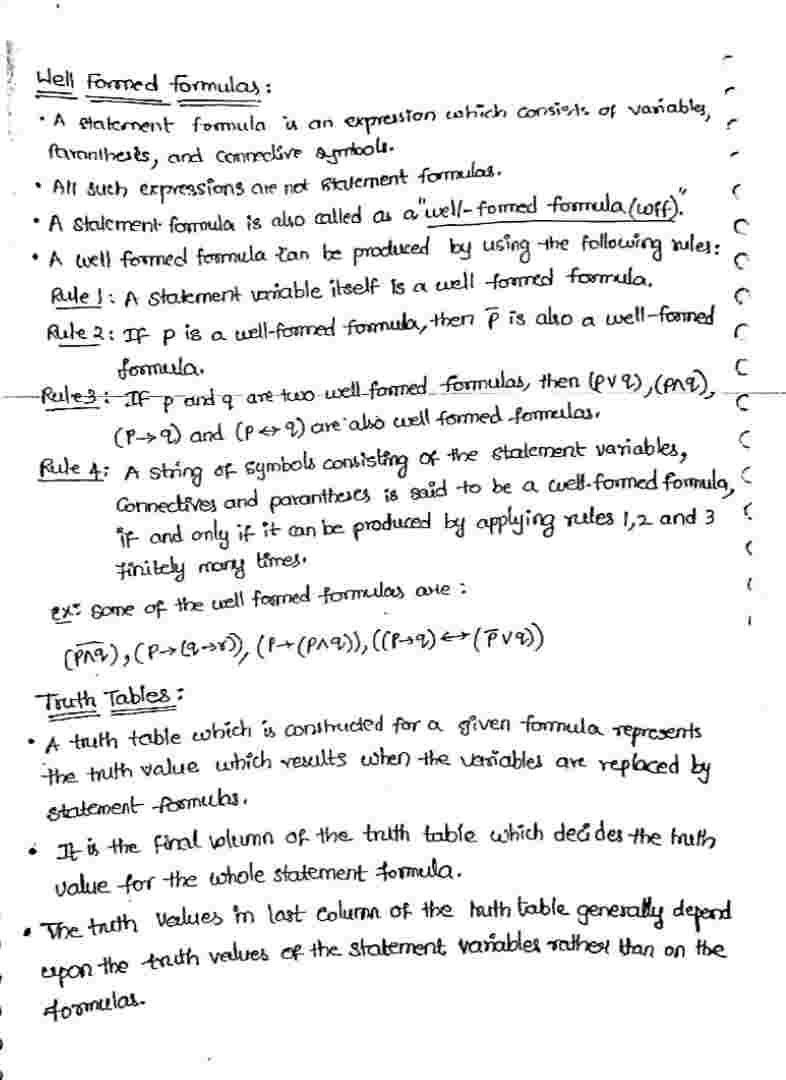 Well Formed Formulas:
• A statement formula is an expression which consists of variables,
Paranthesis, and connective symbols.
• All such expressions are not statement formulas.
• A statement formula is also called as a "well-formed formula (wff)."
• A well formed formula can be produced by using the following rules:
Rule 1: A statement variable itself is a well formed formula.
Rule 2: If p is a well-formed formula, then p̅ is also a well-formed
formula.
Rule 3: If p and q are two well formed formulas, then (p∨q), (p∧q),
(p→q) and (p↔q) are also well formed formulas.
Rule 4: A string of symbols consisting of the statement variables,
Connectives and parantheses is said to be a well-formed formula,
if and only if it can be produced by applying rules 1,2 and 3
finitely many times.
ex: some of the well formed formulas are:
(p̅∧̅q̅), (p→(q→r)), (p→(p∧q)), ((p→q)↔(p̅∨q))
Truth Tables:
• A truth table which is constructed for a given formula represents
the truth value which results when the variables are replaced by
statement formulas.
• It is the final column of the truth table which decides the truth
value for the whole statement formula.
• The truth values in last column of the truth table generally depend
upon the truth values of the statement variables rather than on the
formulas.